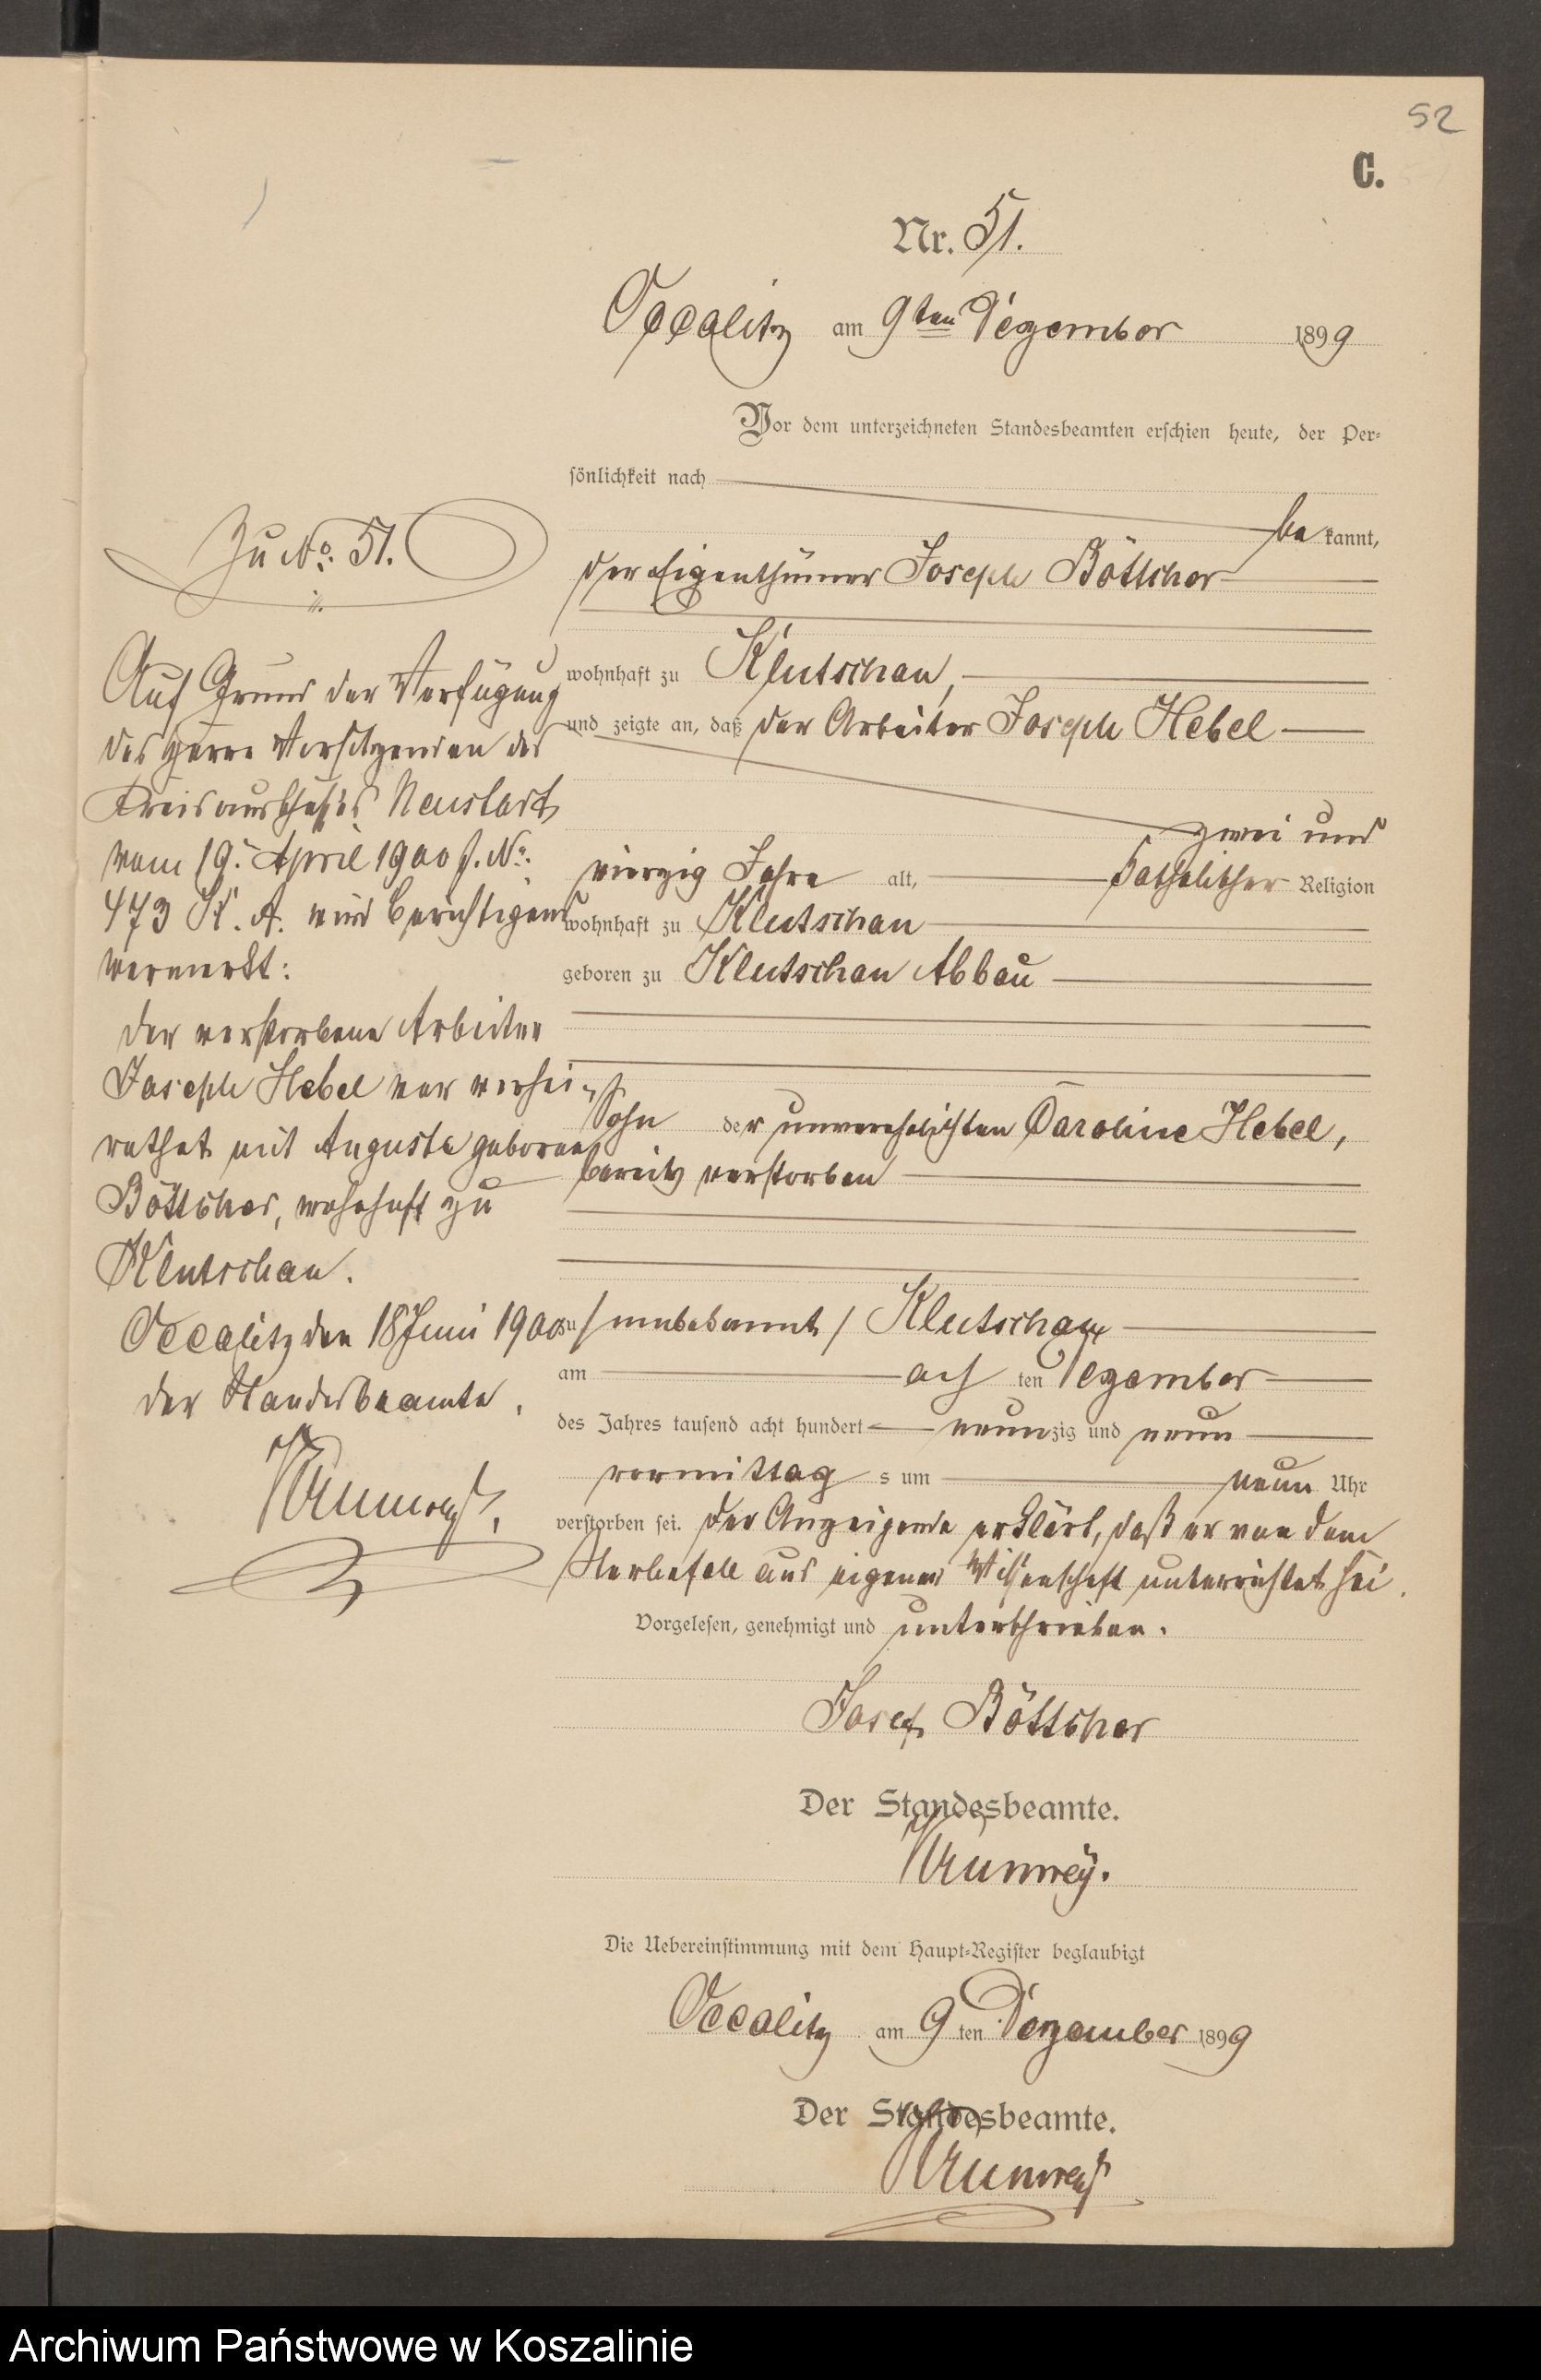 52
C.
Nr. 51.
Occalitz am 9ten Dezember 1899
Vor dem unterzeichneten Standesbeamten erschien heute, der Per-
sönlichkeit nach
be kannt,
der Eigenthümer Joseph Böttcher
wohnhaft zu Klutschau,
und zeigte an, daß der Arbeiter Joseph Hebel
zwei und
vierzig Jahre alt, katholischer Religion
wohnhaft zu Klutschau
geboren zu Klutschau Abbau
Sohn der unverehelichten Caroline Hebel,
bereits verstorben
zu / unbekannt / Klutschau
am acht ten Dezember
des Jahres tausend acht hundert neunzig und neun
vormittag s um neun Uhr
verstorben sei. Der Anzeigende erklärt, daß er von dem
Sterbefall aus eigener Wissenschaft unterrichtet sei.
Vorgelesen, genehmigt und unterschrieben.
Josef Böttcher
Der Standesbeamte.
Die Uebereinstimmung mit dem Haupt-Register beglaubigt
Occalitz am 9 ten Dezember 1899
Der Standesbeamte.
Zu No. 51.
Auf Grund der Verfügung
des Herrn Vorsitzenden des
Kreisausschusses Neustadt
vom 19. April 1900 J. No.
473 K. A. wird berichtigend
vermerkt:
Der verstorbene Arbeiter
Joseph Hebel war verhei-
rathet mit Auguste geborene
Böttcher, wohnhaft zu
Klutschau.
Occalitz den 18 Juni 1900
Der Standesbeamte.
Archiwum Państwowe w Koszalinie